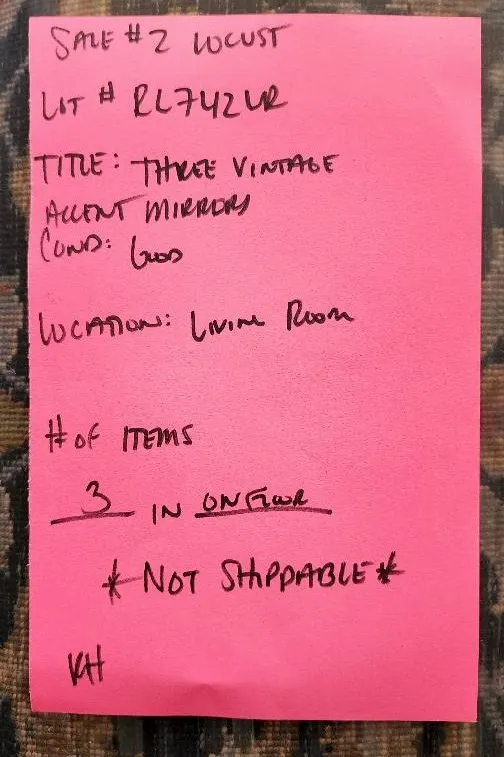 SALE # 2 LOCUST
LOT # RL742LR
TITLE: THREE VINTAGE
ACCENT MIRRORS
COND: GOOD
LOCATION: LIVING ROOM
# OF ITEMS
3 IN ON FLOOR
* NOT SHIPPABLE *
KH